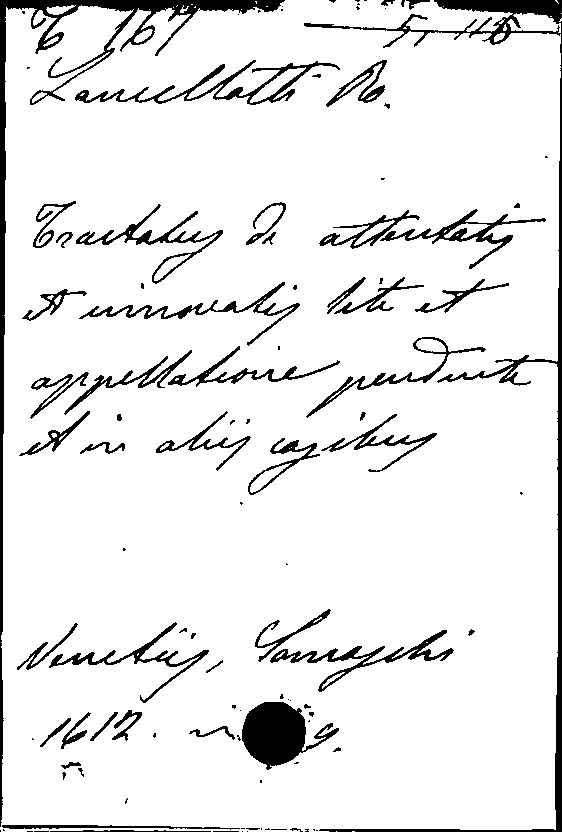 C 167 5, 115
Lancellotti R.
Tractatus de attentatis
et innovatis lite et
appellatione pendente
et in aliis casibus
Venetiis,
1612.